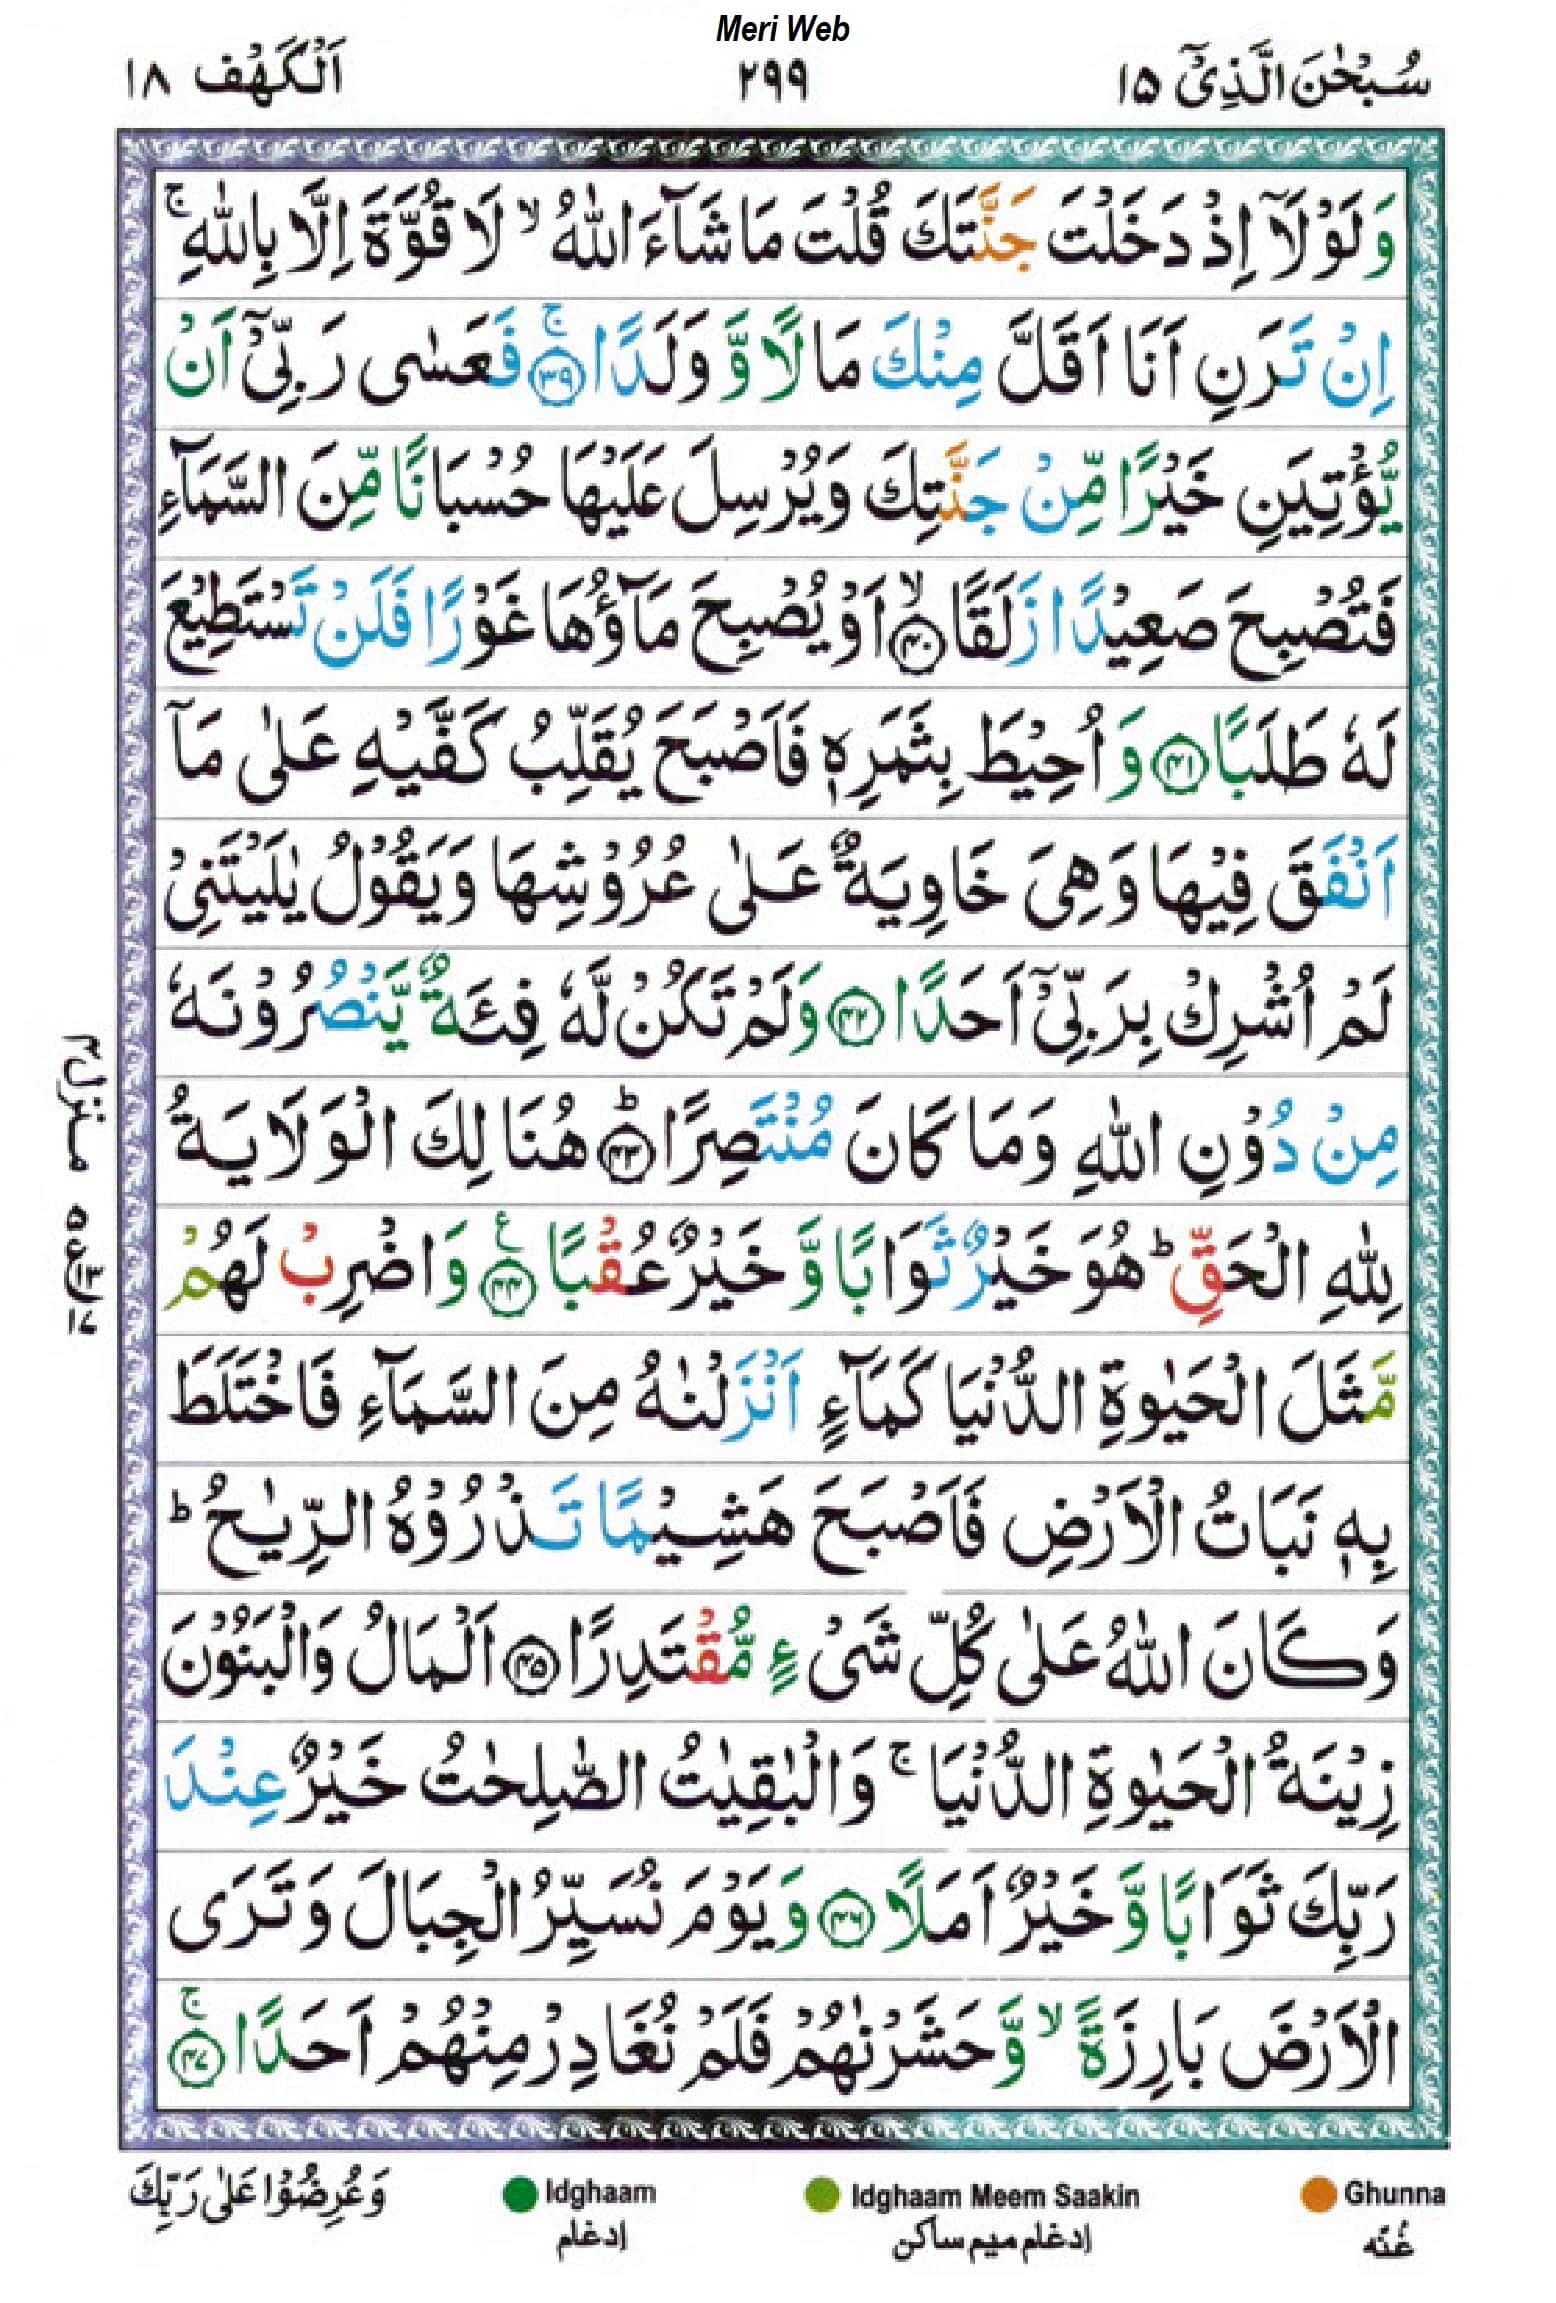 Meri Web
سُبْحٰنَ الَّذِیْۤ ١٥ ٢٩٩ اَلْکَهْف ١٨
وَلَوْلَاۤ اِذْ دَخَلْتَ جَنَّتَكَ قُلْتَ مَا شَآءَ اللّٰهُ ۙ لَا قُوَّةَ اِلَّا بِاللّٰهِ ۚ
اِنْ تَرَنِ اَنَا اَقَلَّ مِنْكَ مَالًا وَّ وَلَدًا ﴿٣٩﴾ۚ فَعَسٰی رَبِّیْۤ اَنْ
یُّؤْتِیَنِ خَیْرًا مِّنْ جَنَّتِكَ وَیُرْسِلَ عَلَیْهَا حُسْبَانًا مِّنَ السَّمَآءِ
فَتُصْبِحَ صَعِیْدًا زَلَقًا ﴿٤٠﴾ۙ اَوْ یُصْبِحَ مَآؤُهَا غَوْرًا فَلَنْ تَسْتَطِیْعَ
لَهٗ طَلَبًا ﴿٤١﴾ وَ اُحِیْطَ بِثَمَرِهٖ فَاَصْبَحَ یُقَلِّبُ كَفَّیْهِ عَلٰی مَاۤ
اَنْفَقَ فِیْهَا وَهِیَ خَاوِیَةٌ عَلٰی عُرُوْشِهَا وَیَقُوْلُ یٰلَیْتَنِیْ
لَمْ اُشْرِكْ بِرَبِّیْۤ اَحَدًا ﴿٤٢﴾ وَلَمْ تَكُنْ لَّهٗ فِئَةٌ یَّنْصُرُوْنَهٗ
مِنْ دُوْنِ اللّٰهِ وَمَا كَانَ مُنْتَصِرًا ﴿٤٣﴾ؕ هُنَا لِكَ الْوَلَایَةُ
لِلّٰهِ الْحَقِّ ؕ هُوَ خَیْرٌ ثَوَابًا وَّ خَیْرٌ عُقْبًا ﴿٤٤﴾ ع وَاضْرِبْ لَهُمْ
مَّثَلَ الْحَیٰوةِ الدُّنْیَا كَمَآءٍ اَنْزَلْنٰهُ مِنَ السَّمَآءِ فَاخْتَلَطَ
بِهٖ نَبَاتُ الْاَرْضِ فَاَصْبَحَ هَشِیْمًا تَذْرُوْهُ الرِّیٰحُ ؕ
وَكَانَ اللّٰهُ عَلٰی كُلِّ شَیْءٍ مُّقْتَدِرًا ﴿٤٥﴾ اَلْمَالُ وَالْبَنُوْنَ
زِیْنَةُ الْحَیٰوةِ الدُّنْیَا ۚ وَالْبٰقِیٰتُ الصّٰلِحٰتُ خَیْرٌ عِنْدَ
رَبِّكَ ثَوَابًا وَّ خَیْرٌ اَمَلًا ﴿٤٦﴾ وَیَوْمَ نُسَیِّرُ الْجِبَالَ وَتَرَی
الْاَرْضَ بَارِزَةً ۙ وَّ حَشَرْنٰهُمْ فَلَمْ نُغَادِرْ مِنْهُمْ اَحَدًا ﴿٤٧﴾ۚ
منزل ٤
وَعُرِضُوْا عَلٰی رَبِّكَ
Idghaam Idghaam Meem Saakin Ghunna
ادغام ادغام میم ساکن غُنّه